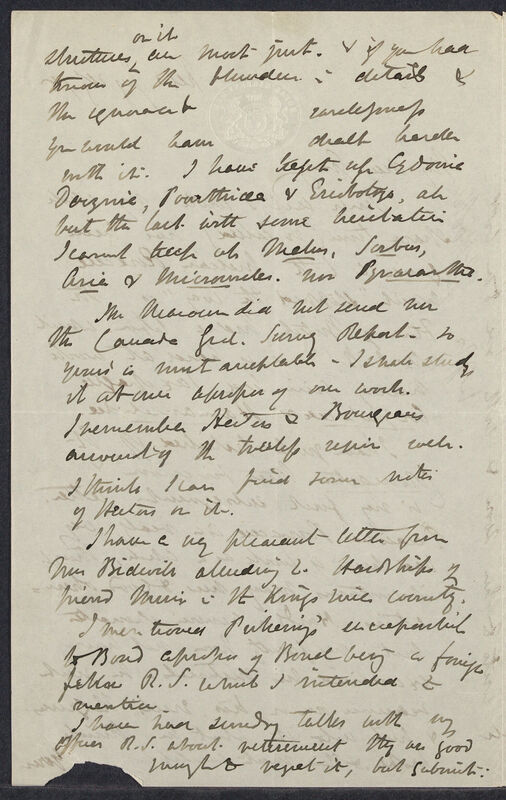 on it
strictures, are most just. & if you had
known of the blunders in details &
the ignorance carelessness
you would have dealt harder
with it. I have kept up Cydonia
Docynia, Pourthiaea & Eriobotrya, all
but the last with some hesitation
I cannot keep up Malus, Sorbus,
Aria & Micromeles. nor Pyracantha.
The Museum did not send me
the Canada Geol. Survey Report - so
yours is most acceptable - I shall study
it at once apropos of our work.
I remember Hector & Bourgeau's
account of the treeless region well.
I think I can find some notes
of Hectors on it.
I have a very pleasant letter from
Mrs Bidwell alluding to Hardships of
friend Muir in the Kings river country.
I mentioned Pickering's
to Bond apropos of Bond being a foreign
fellow R.S. which I intended to
mention
I have had sundry talks with my
officers R.S. about retirement they are good
enough to regret it, but submit: